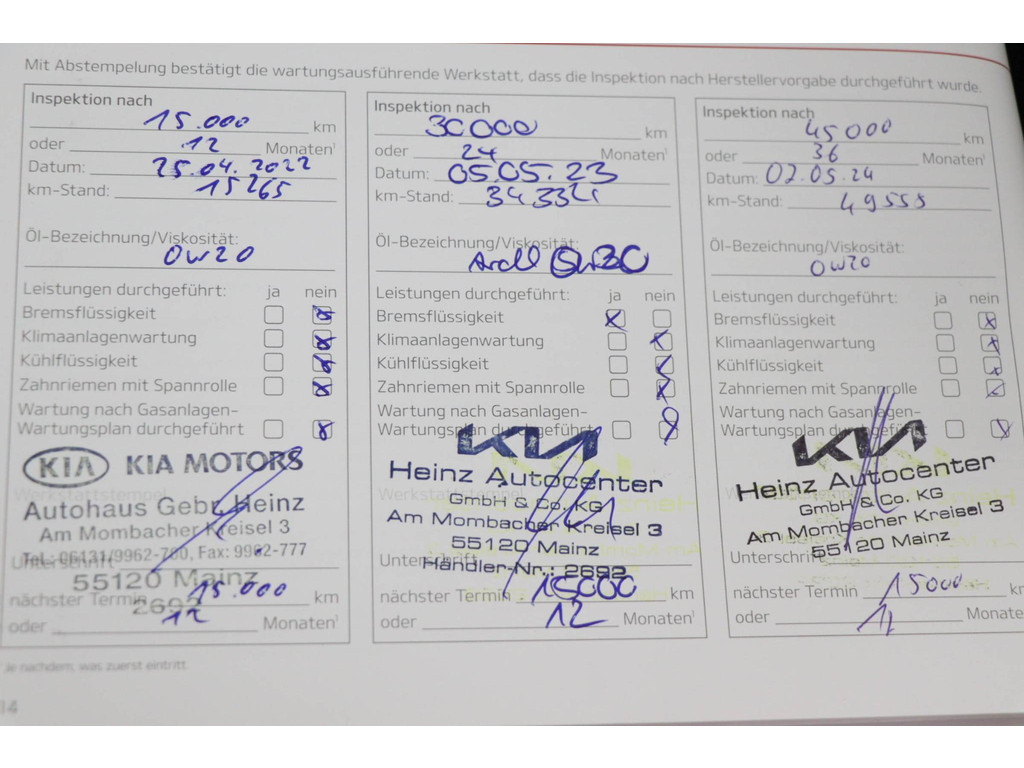 Mit Abstempelung bestätigt die wartungsausführende Werkstatt, dass die Inspektion nach Herstellervorgabe durchgeführt wurde.
Inspektion nach
15.000 km
oder 12 Monaten¹
Datum: 25.04.2022
km-Stand: 15265
Öl-Bezeichnung/Viskosität:
0W20
Leistungen durchgeführt: ja nein
Bremsflüssigkeit x
Klimaanlagenwartung x
Kühlflüssigkeit x
Zahnriemen mit Spannrolle x
Wartung nach Gasanlagen-
Wartungsplan durchgeführt x
KIA KIA MOTORS
Werkstattstempel
Autohaus Gebr. Heinz
Am Mombacher Kreisel 3
Tel.: 06131/9962-760, Fax: 9962-777
Unterschrift
55120 Mainz
nächster Termin 15.000 km
2692
oder 12 Monaten¹
Inspektion nach
30000 km
oder 24 Monaten¹
Datum: 05.05.23
km-Stand: 34334
Öl-Bezeichnung/Viskosität:
0W30
Leistungen durchgeführt: ja nein
Bremsflüssigkeit x
Klimaanlagenwartung x
Kühlflüssigkeit x
Zahnriemen mit Spannrolle x
Wartung nach Gasanlagen-
Wartungsplan durchgeführt x
KIA
Heinz Autocenter
Werkstattstempel
GmbH & Co. KG
Am Mombacher Kreisel 3
55120 Mainz
Unterschrift
Händler-Nr.: 2692
nächster Termin 15000 km
oder 12 Monaten¹
Inspektion nach
45000 km
oder 36 Monaten¹
Datum: 02.05.24
km-Stand: 49558
Öl-Bezeichnung/Viskosität:
0W20
Leistungen durchgeführt: ja nein
Bremsflüssigkeit x
Klimaanlagenwartung x
Kühlflüssigkeit x
Zahnriemen mit Spannrolle x
Wartung nach Gasanlagen-
Wartungsplan durchgeführt x
KIA
Heinz Autocenter
GmbH & Co. KG
Am Mombacher Kreisel 3
55120 Mainz
Unterschrift
nächster Termin 15000 km
oder 12 Monate
Je nachdem, was zuerst eintritt.
14